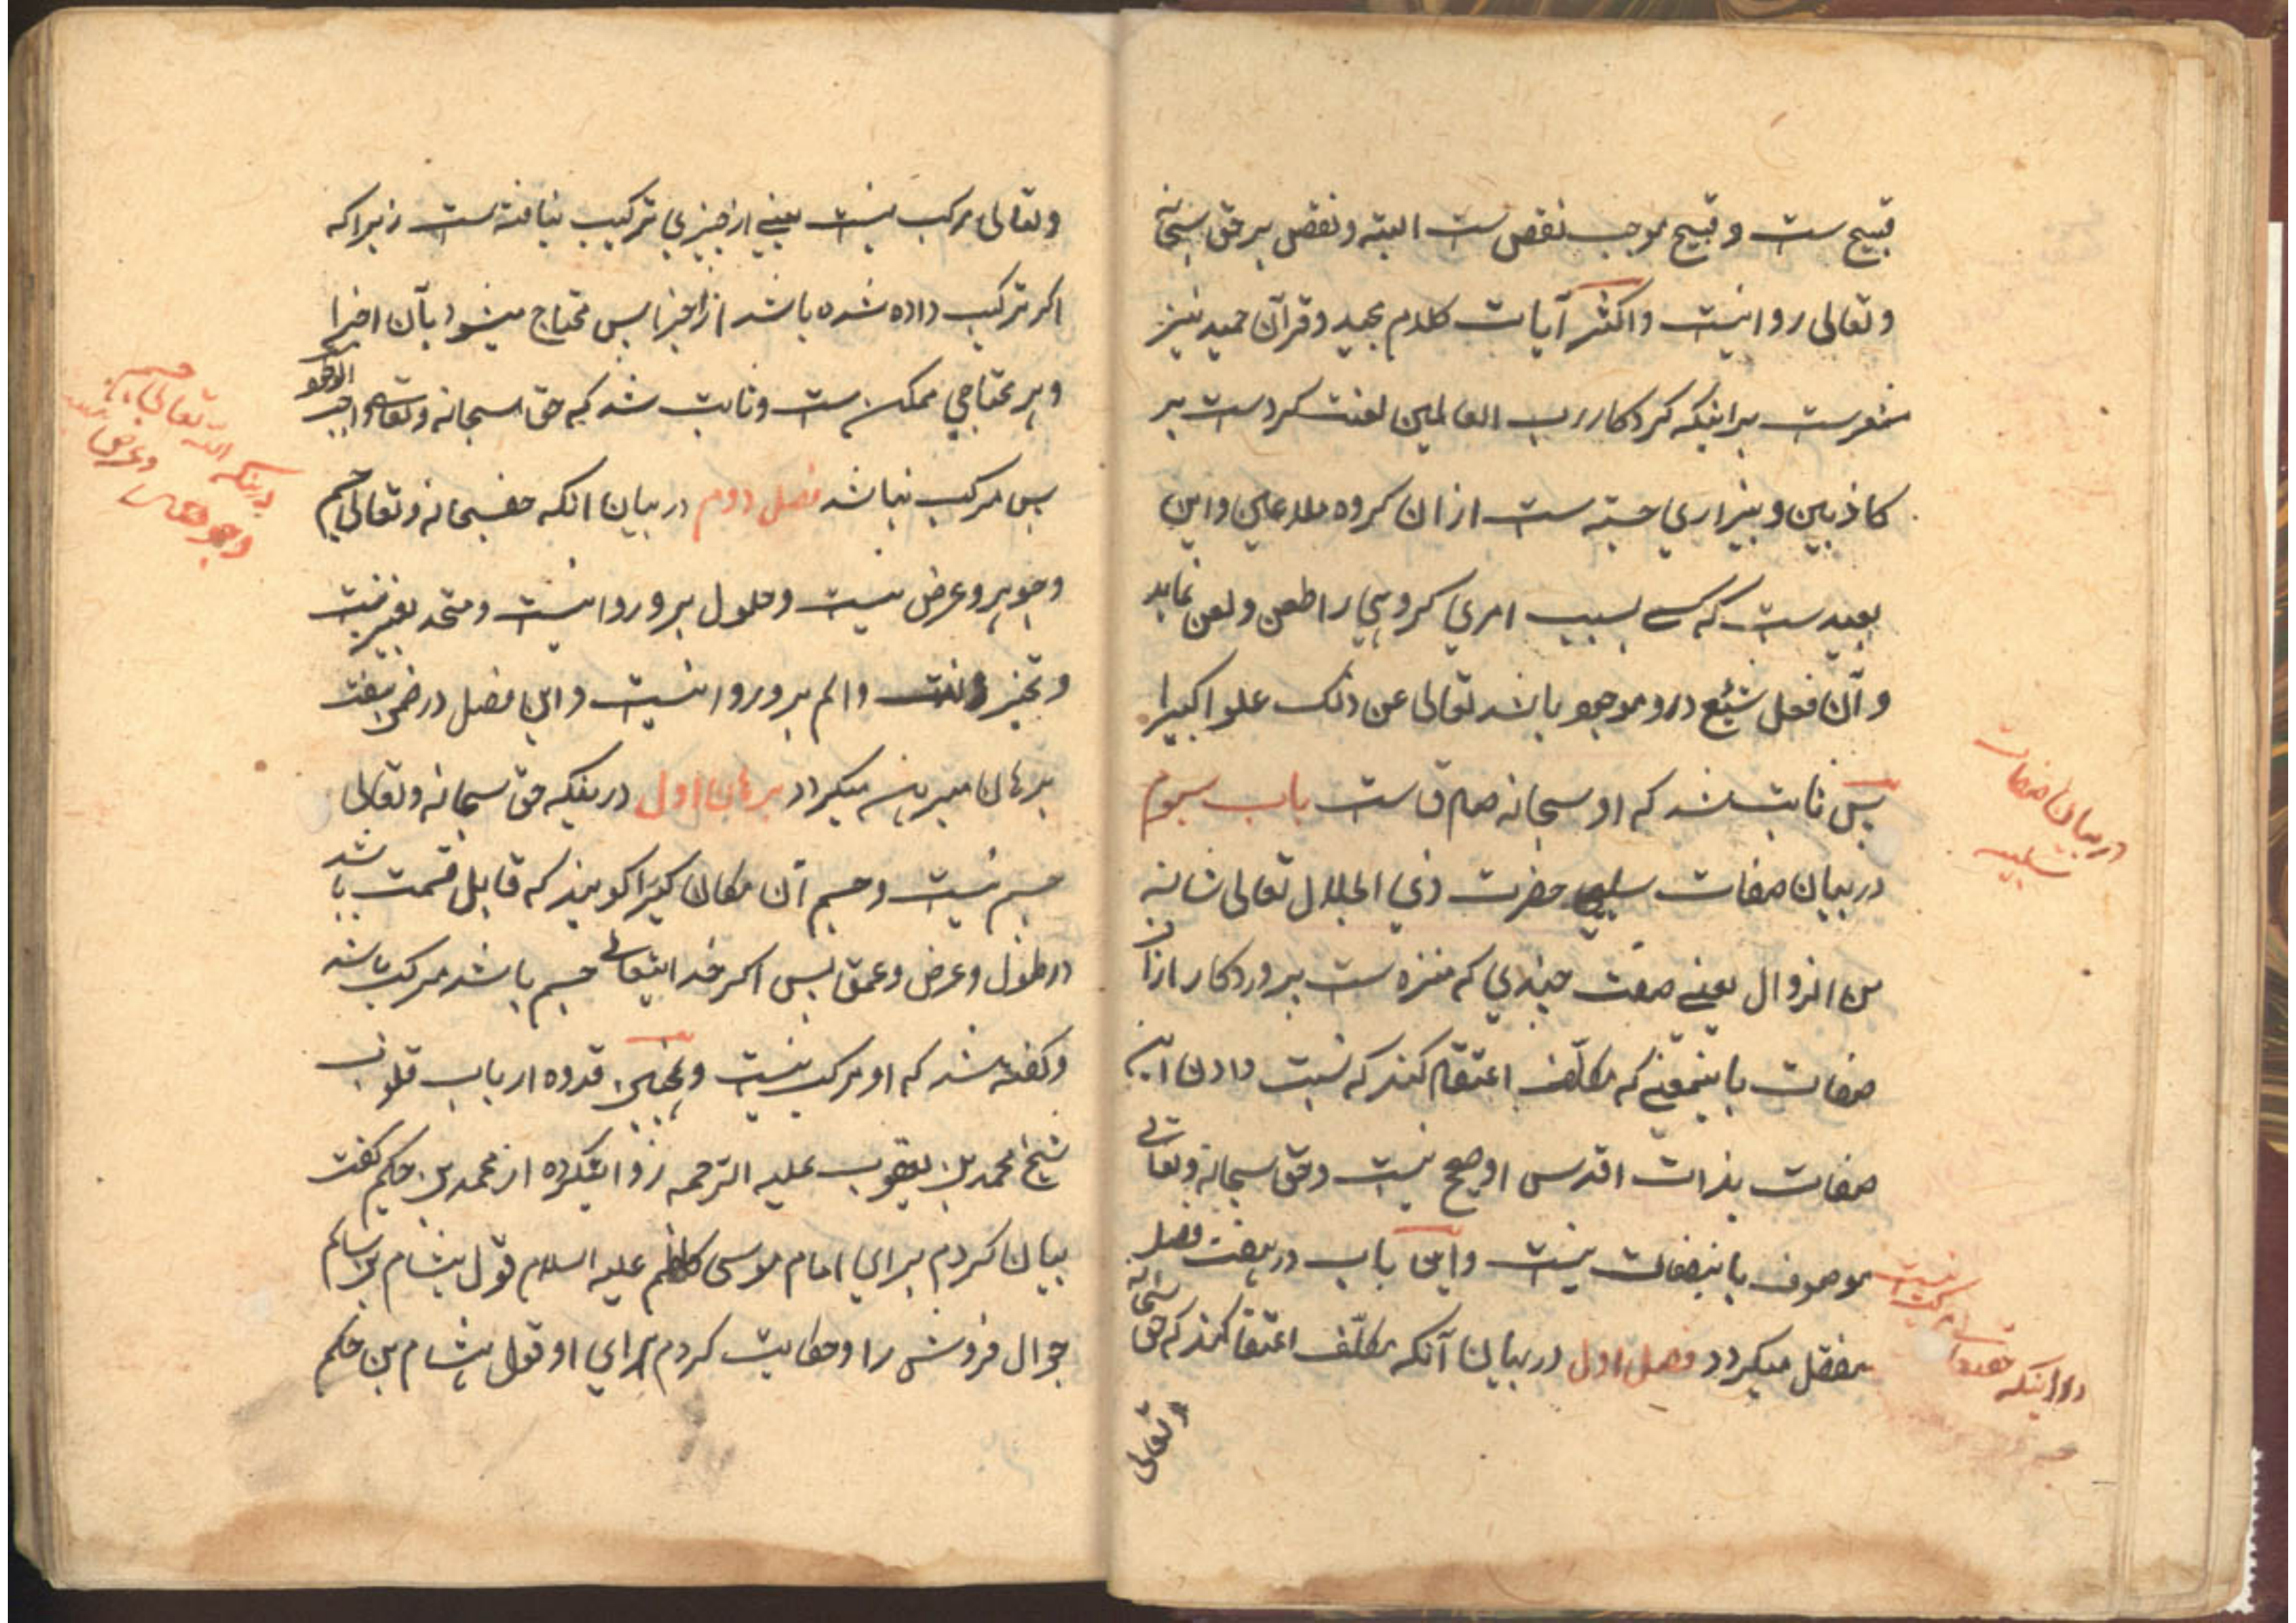 قبیح ست و قبیح موجب نقص ست البته و نقص بر حق سبحانه
و تعالی روا نیست و اکثر آیات کلام مجید و قرآن حمید نیز
مشعرست براینکه کردکار رب العالمین لعنت کردست بر
کاذبین و بیزاری جسته ست از ان کروه ملاعین و این
بعیدست که کسے بسبب امری کروهی را طعن و لعن نماید
و آن فعل شنیع درو موجود باشد تعالی عن ذلک علوا کبیرا
پس ثابت شد که او سبحانه صادق است باب سیوم
در بیان صفات سلبی حضرت ذی الجلال تعالی شانه
من الزوال یعنے صفت چندی که منزه ست پروردکار ازان
صفات باینمعنے که مکلّف اعتقاد کند که نسبت دادن این
صفات بذات اقدس او صحیح نیست و حق سبحانه و تعالی
موصوف باینصفات نیست و این باب در هفت فصل
مفصّل میکردد فصل اول در بیان آنکه مکلّف اعتقاد کند که حق سبحانه
و تعالی
در بیان صفات
سلبیه
در اینکه حقتعالی مرکب نیست
و تعالی مرکب نیست یعنے از چیزی ترکیب نیافته ست زیرا که
اکر ترکیب داده شده باشد از اجزا پس محتاج میشود بآن اجزا
و هر محتاجی ممکن ست و ثابت شد که حق سبحانه و تعالی واجب الوجود
پس مرکب نباشد فصل دوم در بیان انکه حقسبحانه و تعالی جسم
و جوهر و عرض نیست و حلول برو روا نیست و متحد بغیر نیست
و تحیز و لذت و الم برو روا نیست و این فصل در ضمن هفت
برهان مبرهن میکردد برهان اول در بینکه حق سبحانه و تعالی
جسم نیست و جسم آن مکان کیرا کویند که قابل قسمت باشد
در طول و عرض و عمق پس اکر خدایتعالے جسم باشد مرکب باشد
و کفته شد که او مرکب نیست و همچنین قدوه ارباب قلوب
شیخ محمد بن یعقوب علیه الترحمه روایتکرده از محمد بن حکیم کفت
بیان کردم برای امام موسی کاظم علیه السلام قول هشام بن سالم
جوال فروش را و حکایت کردم برای او قول هشام بن حکم
در ینکه الله تعالی جسم
و جوهر و عرض نیست